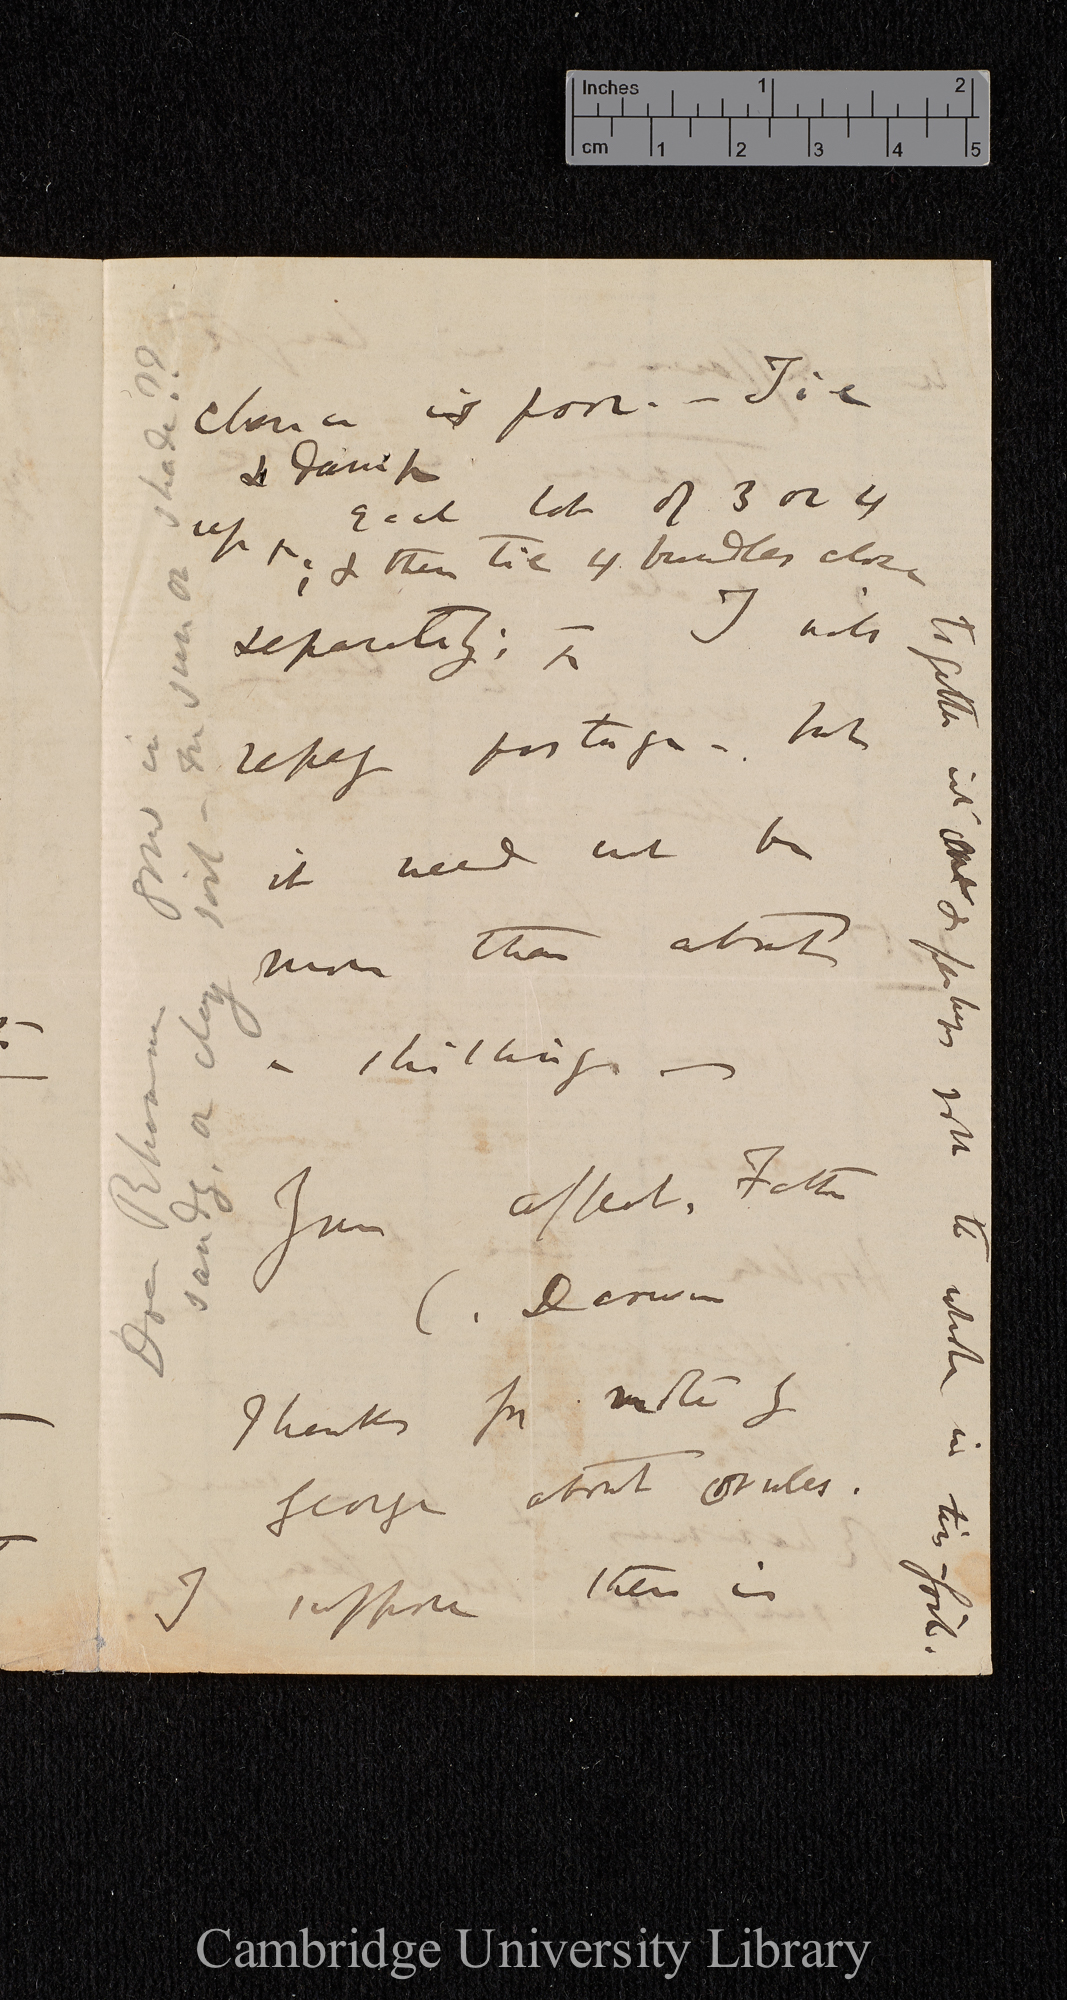 Inches 1 2
cm 1 2 3 4 5
chance is poor. — Tie
& damp
up each lot of 3 or 4
; & then tie 4 bundles close
together into one & perhaps roll the whole in tin-foil.
separately; I will
repay postage — but
it need not be
more than about
a shilling —
Your affect. Father
C. Darwin
Thanks for note by
George about ovules.
I suppose there is
Does Rhamnus grow in shade??
sandy, or clay soil — in sun or
Cambridge University Library